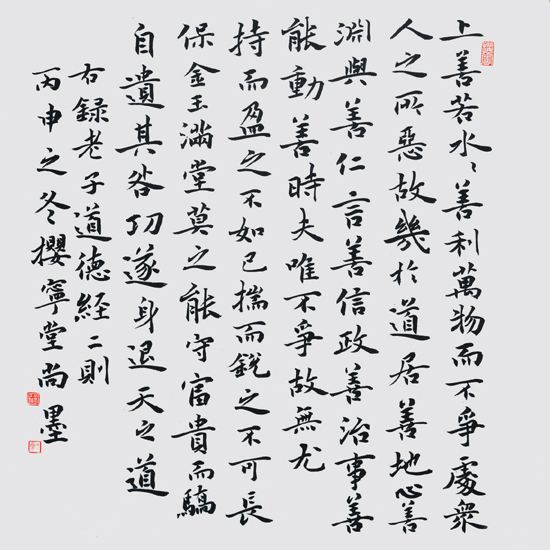 上善若水〻善利萬物而不爭處衆
人之所惡故幾於道居善地心善
淵與善仁言善信政善治事善
能動善時夫唯不爭故無尤
持而盈之不如已揣而銳之不可長
保金玉滿堂莫之能守富貴而驕
自遺其咎功遂身退天之道
右録老子道德経二則
丙申之冬攖寧堂尚墨